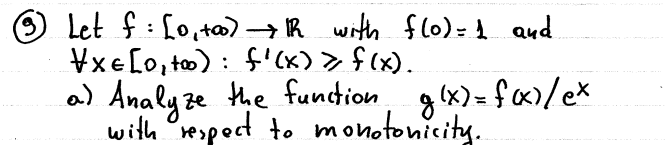 ⑨ Let f : [0,+∞) → ℝ with f(0)=1 and
∀x∈[0,+∞) : f'(x) ≥ f(x).
a) Analyze the function g(x)=f(x)/eˣ
with respect to monotonicity.